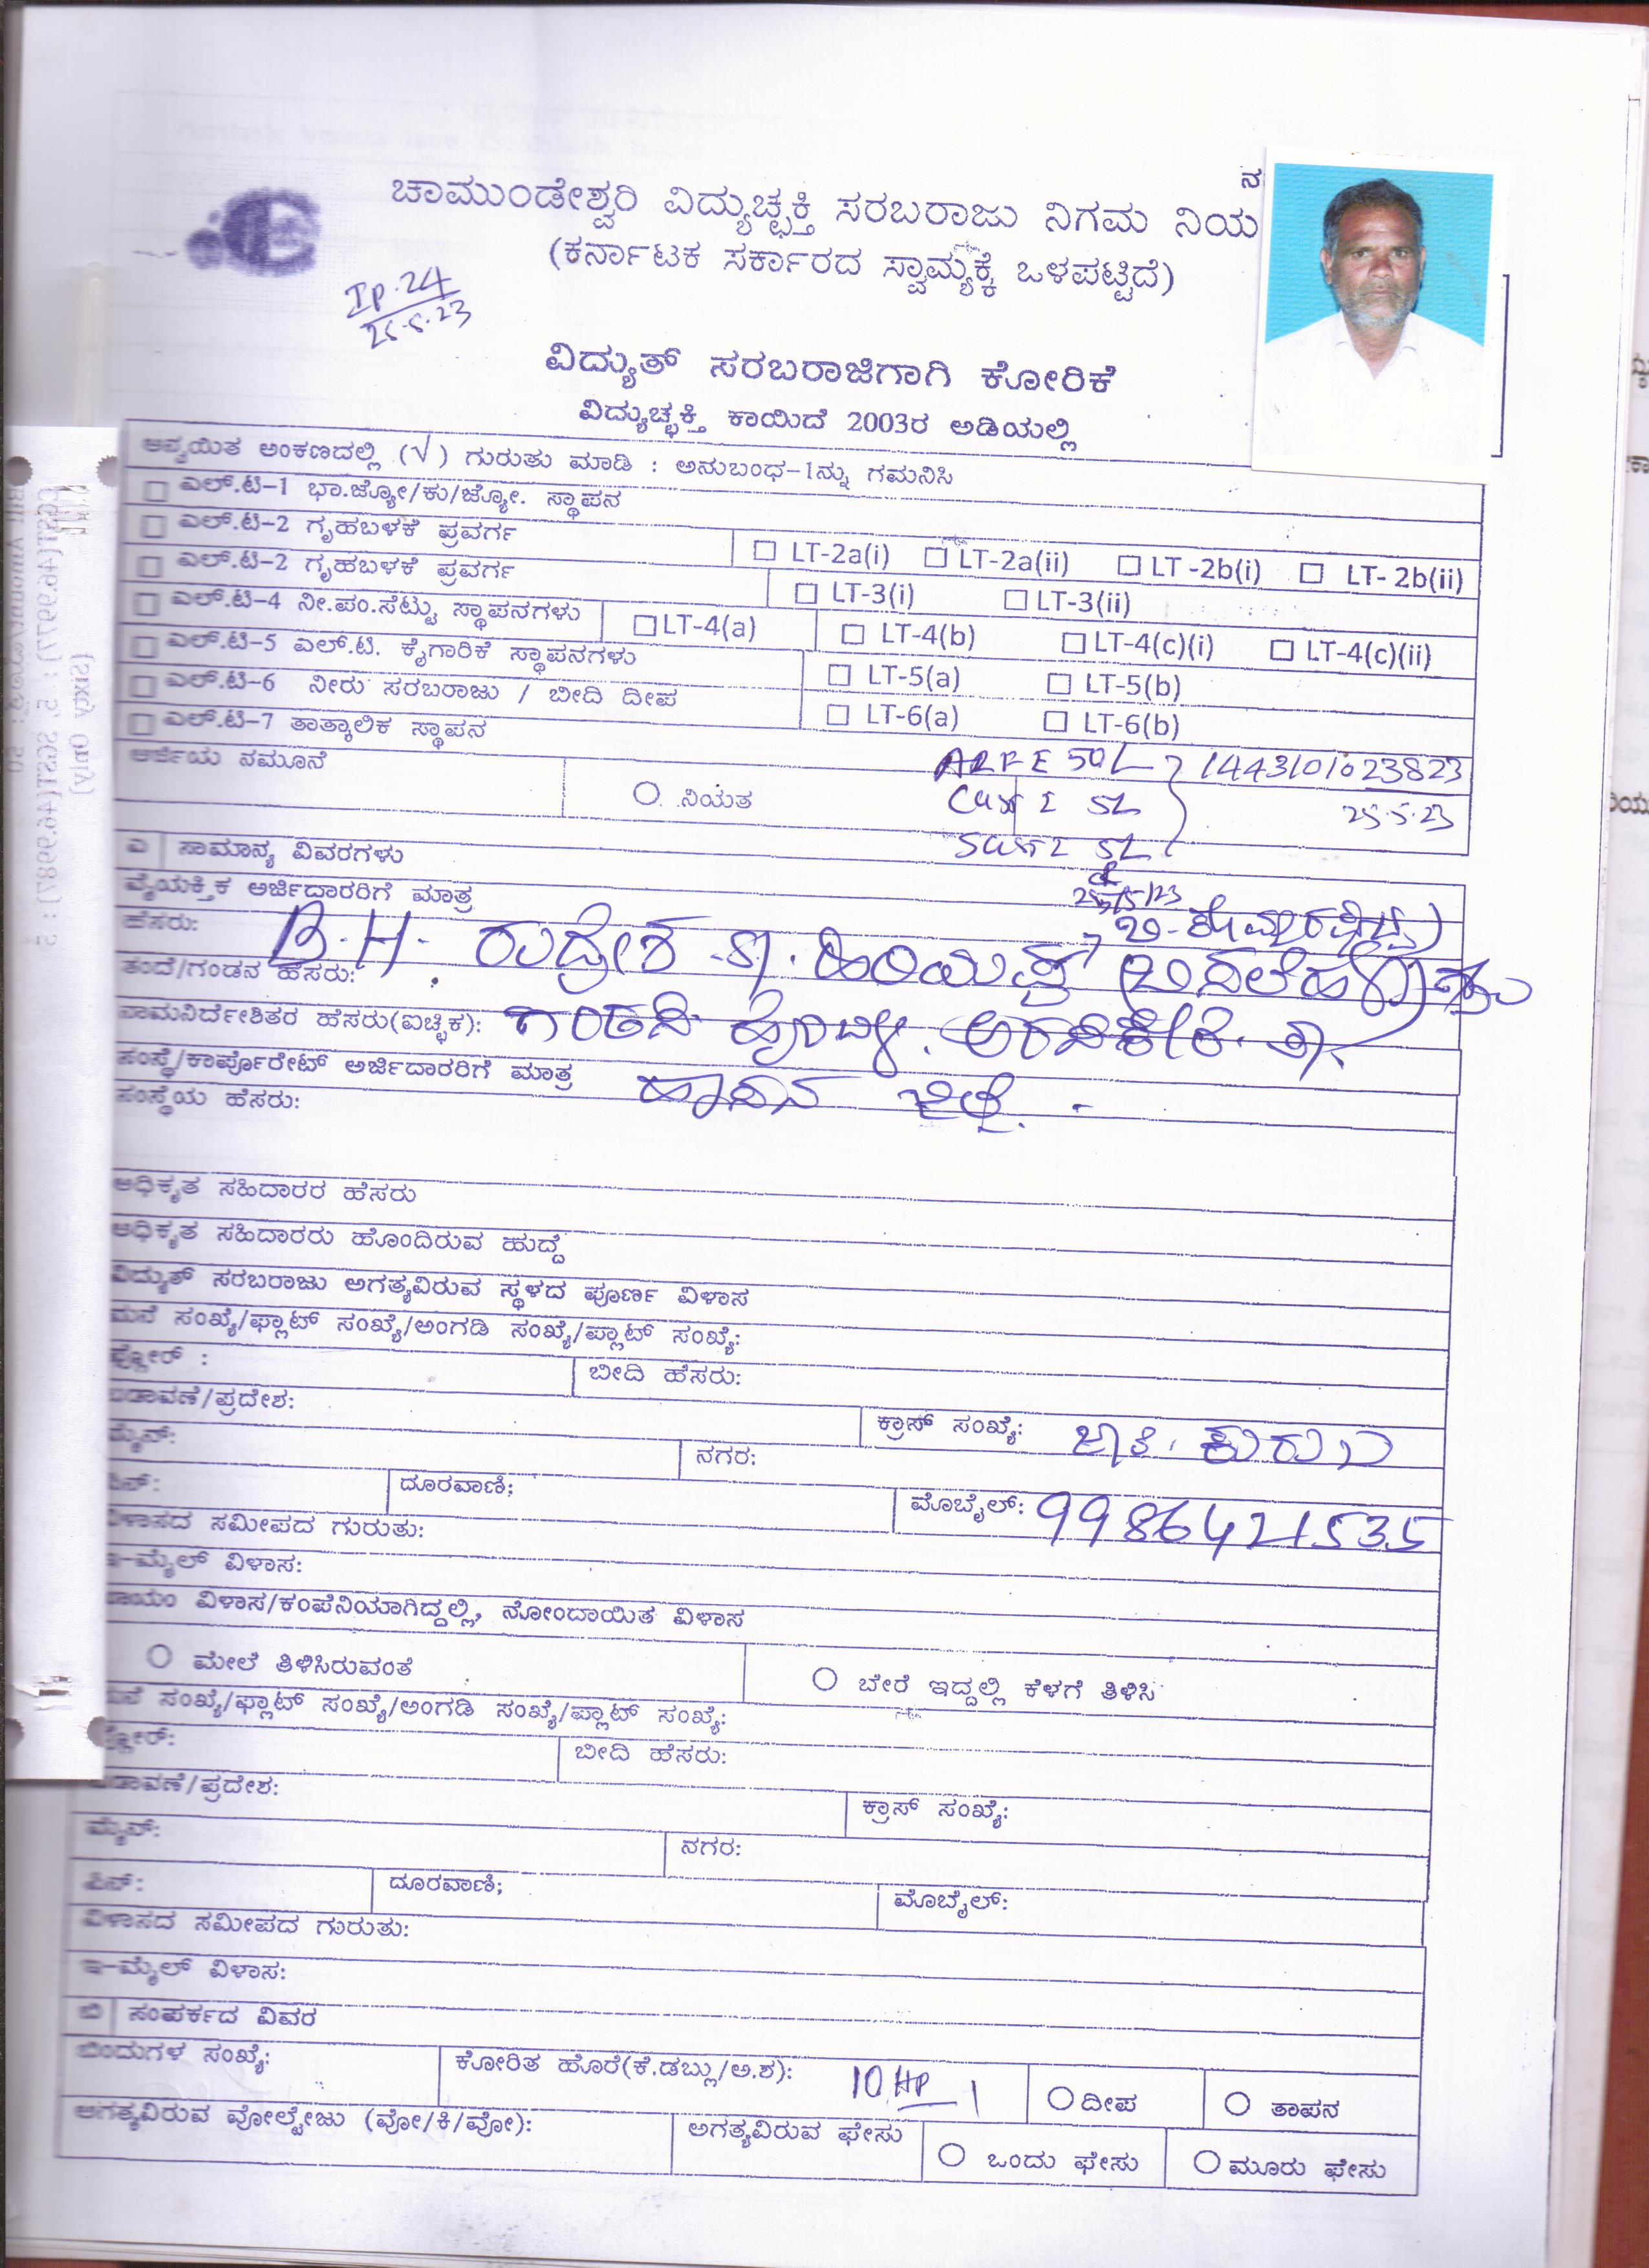 ಚಾಮುಂಡೇಶ್ವರಿ ವಿದ್ಯುಚ್ಛಕ್ತಿ ಸರಬರಾಜು ನಿಗಮ ನಿಯ
(ಕರ್ನಾಟಕ ಸರ್ಕಾರದ ಸ್ವಾಮ್ಯಕ್ಕೆ ಒಳಪಟ್ಟಿದೆ)
IP.24
25.5.23
ವಿದ್ಯುತ್ ಸರಬರಾಜಿಗಾಗಿ ಕೋರಿಕೆ
ವಿದ್ಯುಚ್ಛಕ್ತಿ ಕಾಯಿದೆ 2003ರ ಅಡಿಯಲ್ಲಿ
ಅನ್ವಯಿತ ಅಂಕಣದಲ್ಲಿ (√) ಗುರುತು ಮಾಡಿ : ಅನುಬಂಧ-1ನ್ನು ಗಮನಿಸಿ
ಎಲ್.ಟಿ-1 ಭಾ.ಜ್ಯೋ/ಕು/ಜ್ಯೋ. ಸ್ಥಾಪನ
ಎಲ್.ಟಿ-2 ಗೃಹಬಳಕೆ ಪ್ರವರ್ಗ LT-2a(i) LT-2a(ii) LT -2b(i) LT- 2b(ii)
ಎಲ್.ಟಿ-2 ಗೃಹಬಳಕೆ ಪ್ರವರ್ಗ LT-3(i) LT-3(ii)
ಎಲ್.ಟಿ-4 ನೀ.ಪಂ.ಸೆಟ್ಟು ಸ್ಥಾಪನಗಳು LT-4(a) LT-4(b) LT-4(c)(i) LT-4(c)(ii)
ಎಲ್.ಟಿ-5 ಎಲ್.ಟಿ. ಕೈಗಾರಿಕೆ ಸ್ಥಾಪನಗಳು LT-5(a) LT-5(b)
ಎಲ್.ಟಿ-6 ನೀರು ಸರಬರಾಜು / ಬೀದಿ ದೀಪ LT-6(a) LT-6(b)
ಎಲ್.ಟಿ-7 ತಾತ್ಕಾಲಿಕ ಸ್ಥಾಪನ
ಅರ್ಜಿಯ ನಮೂನೆ 50/- 14431010023823
ನಿಯತ 25.5.23
ಎ ಸಾಮಾನ್ಯ ವಿವರಗಳು
ವೈಯಕ್ತಿಕ ಅರ್ಜಿದಾರರಿಗೆ ಮಾತ್ರ 25/5/23
ಹೆಸರು: B.H. ರುದ್ರೇಶ
ತಂದೆ/ಗಂಡನ ಹೆಸರು:
ನಾಮನಿರ್ದೇಶಿತರ ಹೆಸರು(ಐಚ್ಛಿಕ): ಗಂಡಸಿ ಹೋಬಳಿ. ಅರಸೀಕೆರೆ. ತಾ.
ಸಂಸ್ಥೆ/ಕಾರ್ಪೊರೇಟ್ ಅರ್ಜಿದಾರರಿಗೆ ಮಾತ್ರ ಹಾಸನ ಜಿಲ್ಲೆ.
ಸಂಸ್ಥೆಯ ಹೆಸರು:
ಅಧಿಕೃತ ಸಹಿದಾರರ ಹೆಸರು
ಅಧಿಕೃತ ಸಹಿದಾರರು ಹೊಂದಿರುವ ಹುದ್ದೆ
ವಿದ್ಯುತ್ ಸರಬರಾಜು ಅಗತ್ಯವಿರುವ ಸ್ಥಳದ ಪೂರ್ಣ ವಿಳಾಸ
ಮನೆ ಸಂಖ್ಯೆ/ಫ್ಲಾಟ್ ಸಂಖ್ಯೆ/ಅಂಗಡಿ ಸಂಖ್ಯೆ/ಪ್ಲಾಟ್ ಸಂಖ್ಯೆ:
ಫ್ಲೋರ್ : ಬೀದಿ ಹೆಸರು:
ಬಡಾವಣೆ/ಪ್ರದೇಶ: ಕ್ರಾಸ್ ಸಂಖ್ಯೆ:
ಮೈನ್: ನಗರ:
ಪಿನ್: ದೂರವಾಣಿ; ಮೊಬೈಲ್: 9986421535
ವಿಳಾಸದ ಸಮೀಪದ ಗುರುತು:
ಇ-ಮೈಲ್ ವಿಳಾಸ:
ಖಾಯಂ ವಿಳಾಸ/ಕಂಪೆನಿಯಾಗಿದ್ದಲ್ಲಿ, ನೋಂದಾಯಿತ ವಿಳಾಸ
ಮೇಲೆ ತಿಳಿಸಿರುವಂತೆ ಬೇರೆ ಇದ್ದಲ್ಲಿ ಕೆಳಗೆ ತಿಳಿಸಿ
ಮನೆ ಸಂಖ್ಯೆ/ಫ್ಲಾಟ್ ಸಂಖ್ಯೆ/ಅಂಗಡಿ ಸಂಖ್ಯೆ/ಪ್ಲಾಟ್ ಸಂಖ್ಯೆ:
ಫ್ಲೋರ್: ಬೀದಿ ಹೆಸರು:
ಬಡಾವಣೆ/ಪ್ರದೇಶ: ಕ್ರಾಸ್ ಸಂಖ್ಯೆ:
ಮೈನ್: ನಗರ:
ಪಿನ್: ದೂರವಾಣಿ; ಮೊಬೈಲ್:
ವಿಳಾಸದ ಸಮೀಪದ ಗುರುತು:
ಇ-ಮೈಲ್ ವಿಳಾಸ:
ಬಿ ಸಂಪರ್ಕದ ವಿವರ
ಬಿಂದುಗಳ ಸಂಖ್ಯೆ: ಕೋರಿತ ಹೊರೆ(ಕೆ.ಡಬ್ಲು/ಅ.ಶ): 10 HP ದೀಪ ತಾಪನ
ಅಗತ್ಯವಿರುವ ವೋಲ್ಟೇಜು (ವೋ/ಕಿ/ವೋ): ಅಗತ್ಯವಿರುವ ಫೇಸು ಒಂದು ಫೇಸು ಮೂರು ಫೇಸು